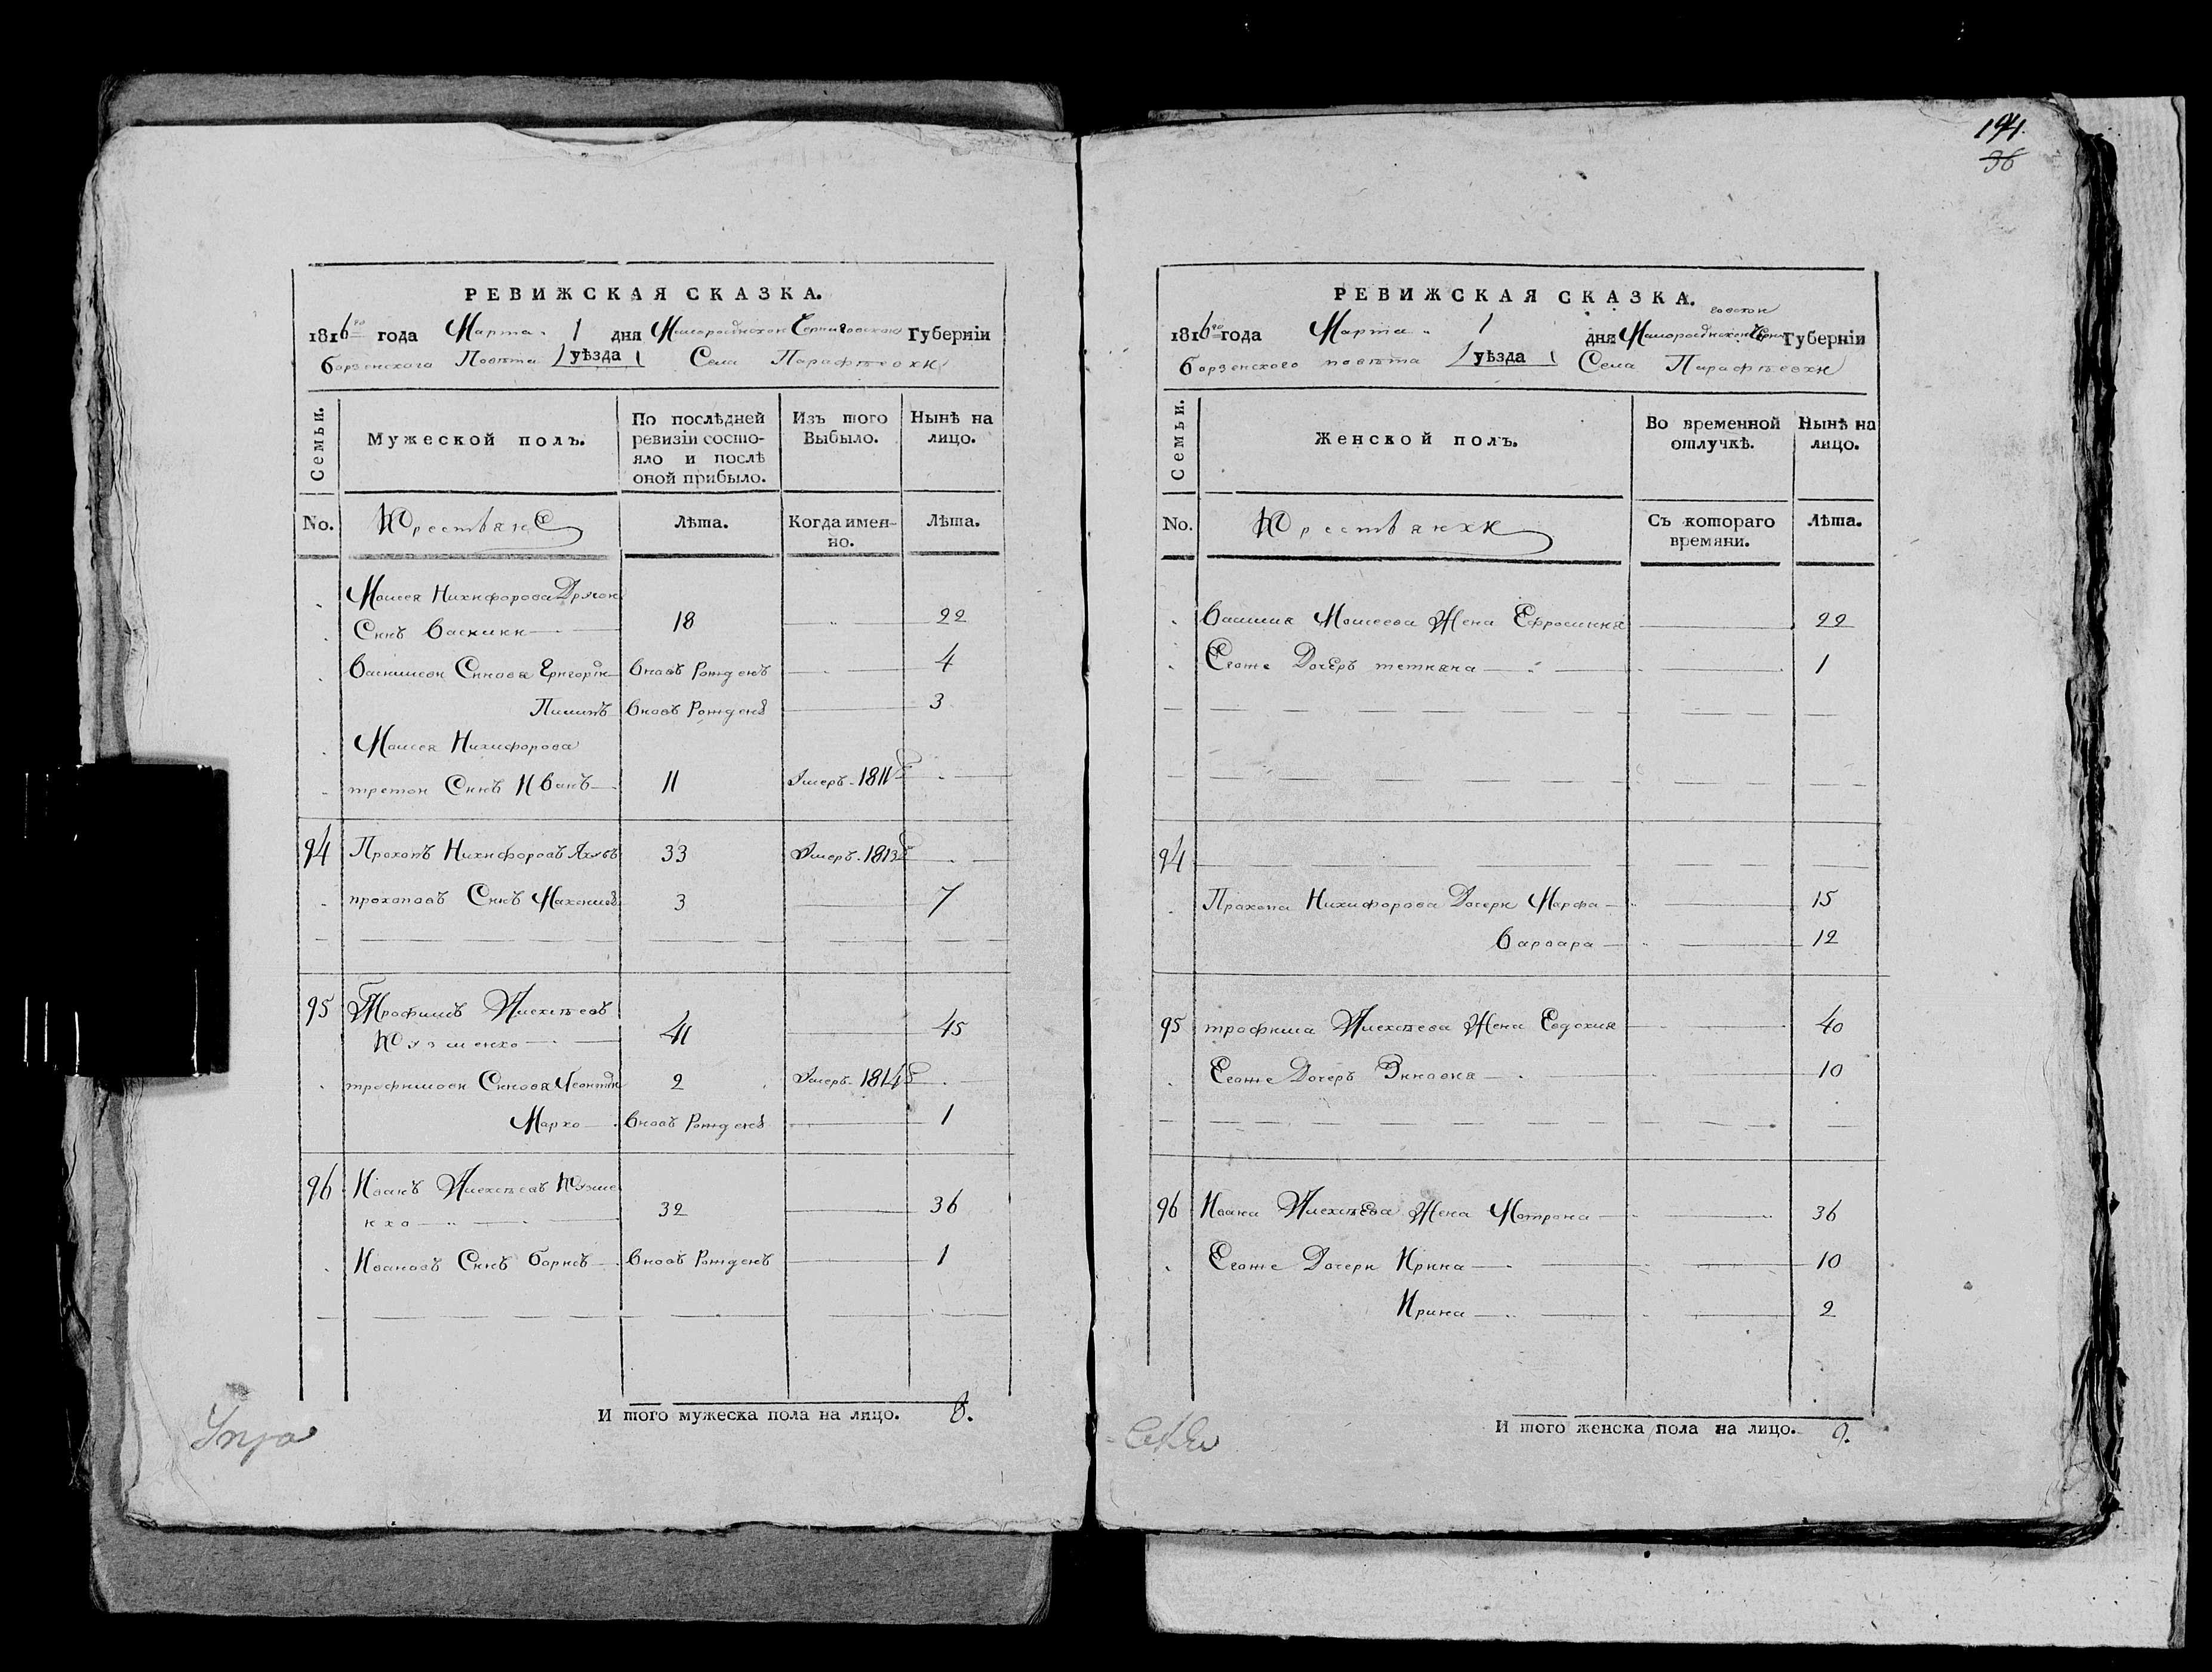 РЕВИЖСКАЯ СКАЗКА.
1816го года Марта 1 дня Малороссійской Черниговской Губерніи
борзенского Повѣта уѣзда Села Парафѣевки
Семьи.
Мужеской полъ.
По послѣдней ревизіи состо-
яло и послѣ
оной прибыло.
Изъ того
Выбыло.
Нынѣ на
лицо.
No.
Крестьяне
Лѣта.
Когда имен-
но.
Лѣта.
Моисея Никифорова
Снъ Василий 18 22
Василиеви Снновя Григорій вновъ Рожденъ 4
Пилипъ вновъ Рожденъ 3
Моисея Никифорова
третой Снъ Иванъ 11 Умеръ 1811
94 Прокопъ Никифоровъ 33 Умеръ 1813
прокоповъ Снъ 3 7
95 Трофимъ Алексѣевъ
Кузменко 41 45
трофимови Снновя Леонтій 2 Умеръ 1814
Марко вновъ Рожденъ 1
96 Иванъ Алексѣевъ Кузме
нко 32 36
Ивановъ Снъ Борисъ вновъ Рожденъ 1
И того мужеска пола на лицо. 8.
194.
36
РЕВИЖСКАЯ СКАЗКА.
говской
1816го года Марта 1 дня Малороссійской Черни Губерніи
борзенского повѣта уѣзда Села Парафѣевки
Семьи.
Женской полъ.
Во временной
отлучкѣ.
Нынѣ на
лицо.
No.
Крестьянки
Съ котораго
времяни.
Лѣта.
Василия Моисеева Жена Ефросиния 22
Егоже Дочеръ тетияна 1
94
Прокопа Никифорова Дочери Марфа 15
варвара 12
95 трофима Алексѣева Жена Евдокия 40
Егоже Дочеръ 10
96 Ивана Алексѣева Жена Мотрона 36
Егоже Дочери Ирина 10
Ирина 2
И того женска пола на лицо. 9.